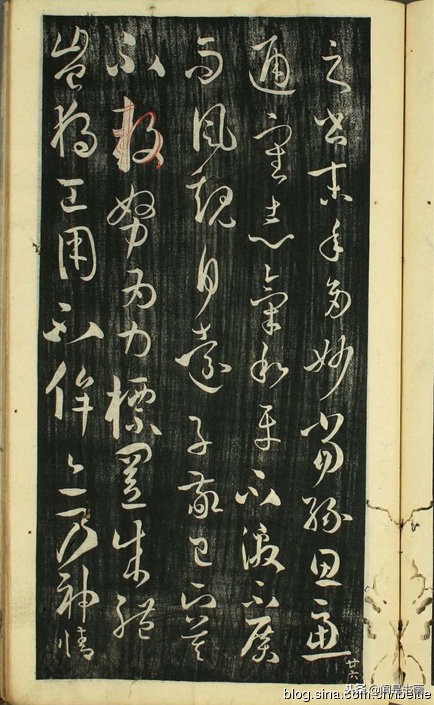 之書末年多妙當緣思慮
通審志氣和平不激不厲
而風規自遠子敬已下莫
不鼓努為力標置成體
豈獨工用不侔亦乃神情
廿六
头条
blog.sina.com.cn/ibeitie